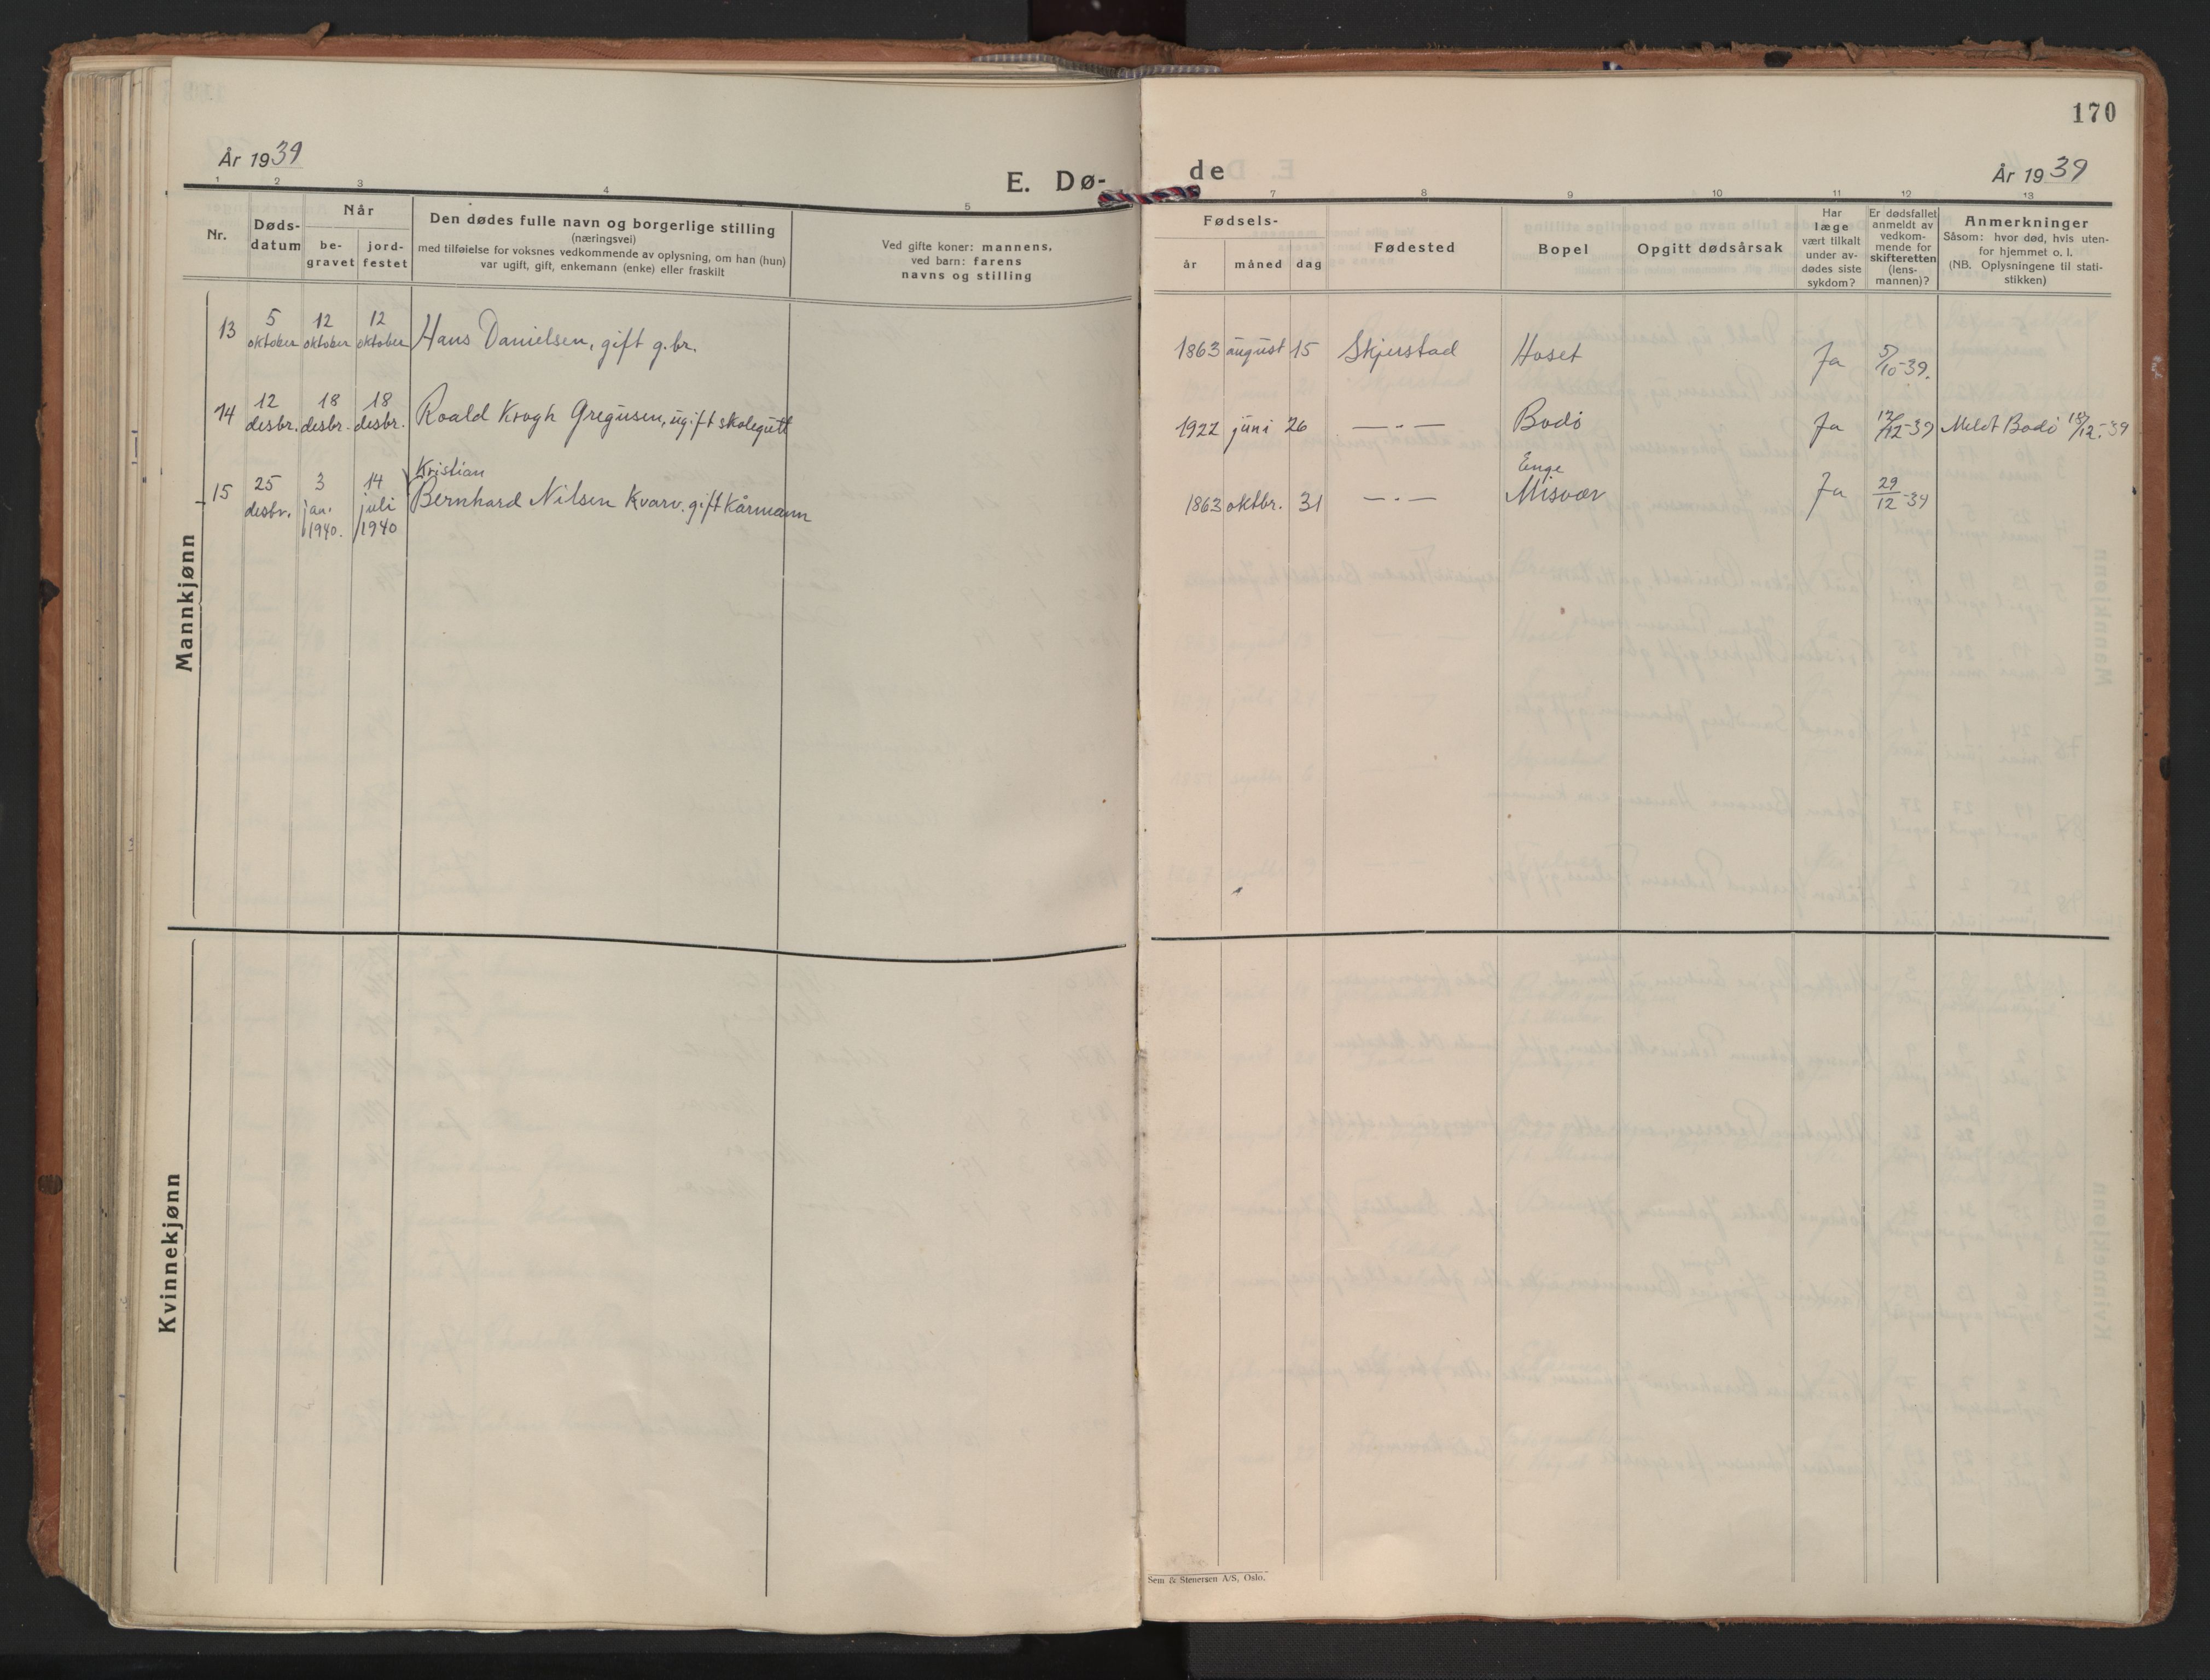 170
År 1939
E. Dø-
de
År 1939
1 2 3 4 5 7 8 9 10 11 12 13
Nr.
Døds-
datum
Når
be-
gravet
jord-
festet
Den dødes fulle navn og borgerlige stilling
(næringsvei)
med tilføielse for voksnes vedkommende av oplysning, om han (hun)
var ugift, gift, enkemann (enke) eller fraskilt
Ved gifte koner: mannens,
ved barn: farens
navns og stilling
Fødsels-
år måned dag
Fødested
Bopel
Opgitt dødsårsak
Har
læge
vært tilkalt
under av-
dødes siste
sykdom?
Er dødsfallet
anmeldt av
vedkom-
mende for
skifteretten
(lens-
mannen)?
Anmerkninger
Såsom: hvor død, hvis uten-
for hjemmet o. l.
(NB. Oplysningene til stati-
stikken)
Mannkjønn
13 5 oktober 12 oktober 12 oktober Hans Danielsen, gift g.br. 1863 august 15 Skjerstad Hoset Ja 5/10-39.
14 12 desbr. 18 desbr. 18 desbr. Roald Krogh Gregusen, ugift skolegutt 1922 juni 26 —„— Bodø Ja 12/12-39 Meldt Bodø 18/12-39
Kristian
Enge
15 25 desbr. 3 jan. 1940. 14 juli 1940 Bernhard Nilsen Kvarv. gift Kårmann 1863 oktbr. 31 —„— Misvær Ja 29/12-39
Kvinnekjønn
Sem & Stenersen A/S, Oslo.